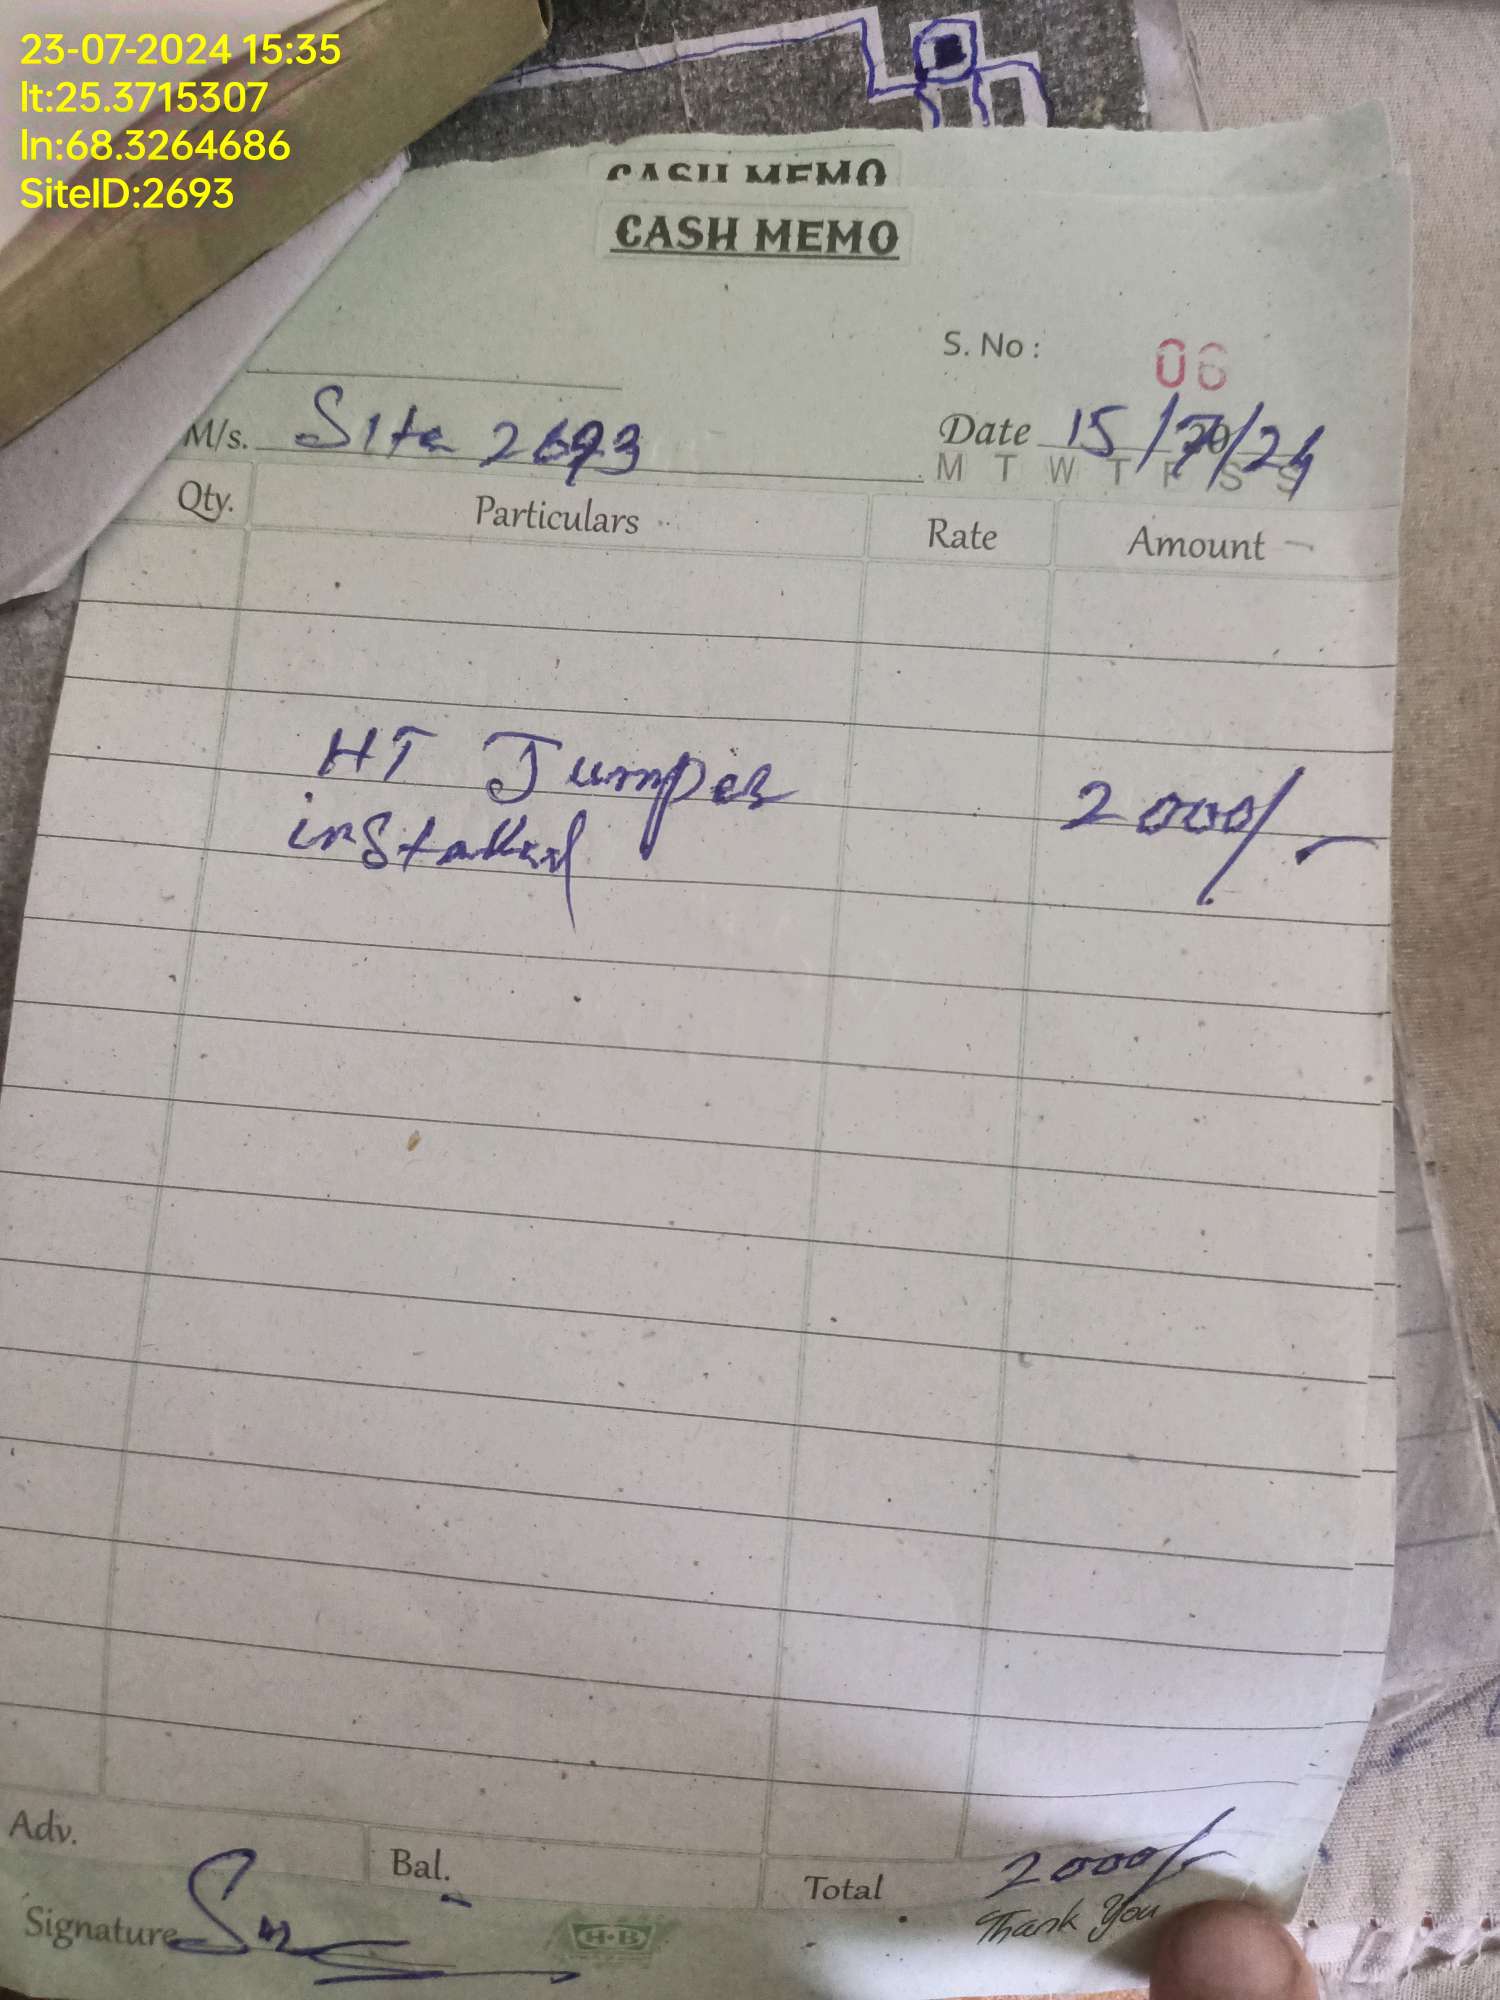 23-07-2024 15:35
lt:25.3715307
ln:68.3264686
SiteID:2693
CASH MEMO
CASH MEMO
S. No : 06
M/s. Site 2693
Date 15/7/24
M T W T F S S
Qty. Particulars Rate Amount
HT Jumper 2000/-
installed
Adv. Bal. Total 2000/-
Signature
H·B
Thank You